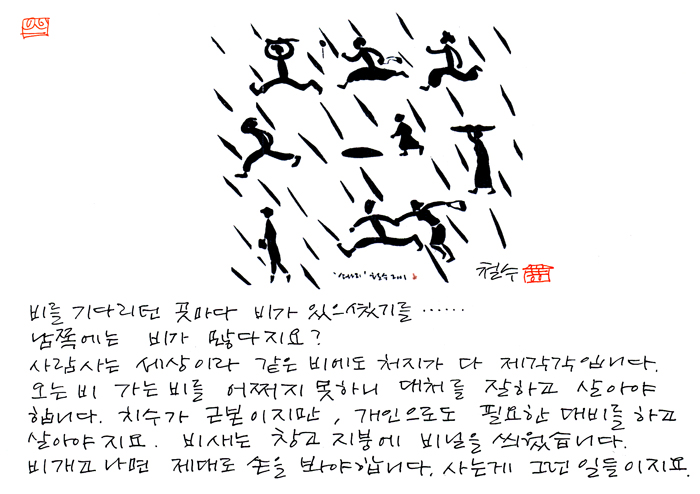 철수
비를 기다리던 곳마다 비가 있으셨기를 ......
남쪽에는 비가 많다지요?
사람사는 세상이라 같은 비에도 처지가 다 제각각입니다.
오는비 가는비를 어쩌지 못하니 대처를 잘하고 살아야
합니다. 치수가 근본이지만, 개인으로도 필요한 대비를 하고
살아야지요. 비새는 창고 지붕에 비닐을 씌웠습니다.
비개고나면 제대로 손을 봐야합니다. 사는게 그런 일들이지요.